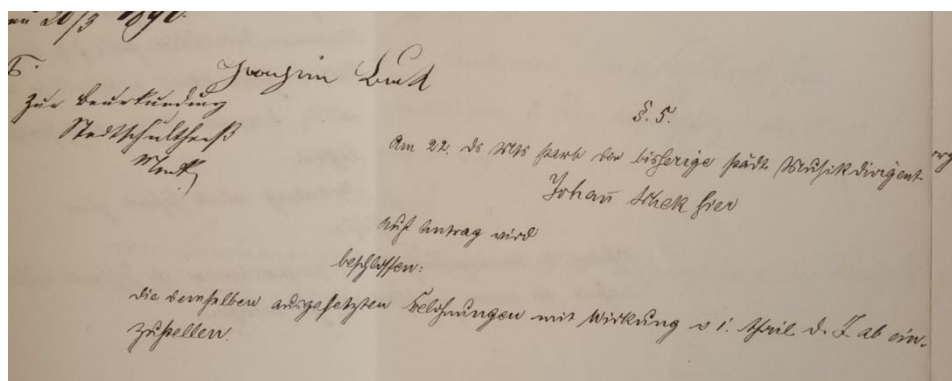 20/3 1890.
Joachim
Zur Beurkundung
Stadtschultheiß
§. 5.
Am 22. ds Mts starb der bisherige städt Musikdirigent
Johañ hier
Auf Antrag wird
beschlossen:
die demselben ausgesetzten Belohnungen mit Wirkung v 1. April d. J. ab ein-
zustellen.